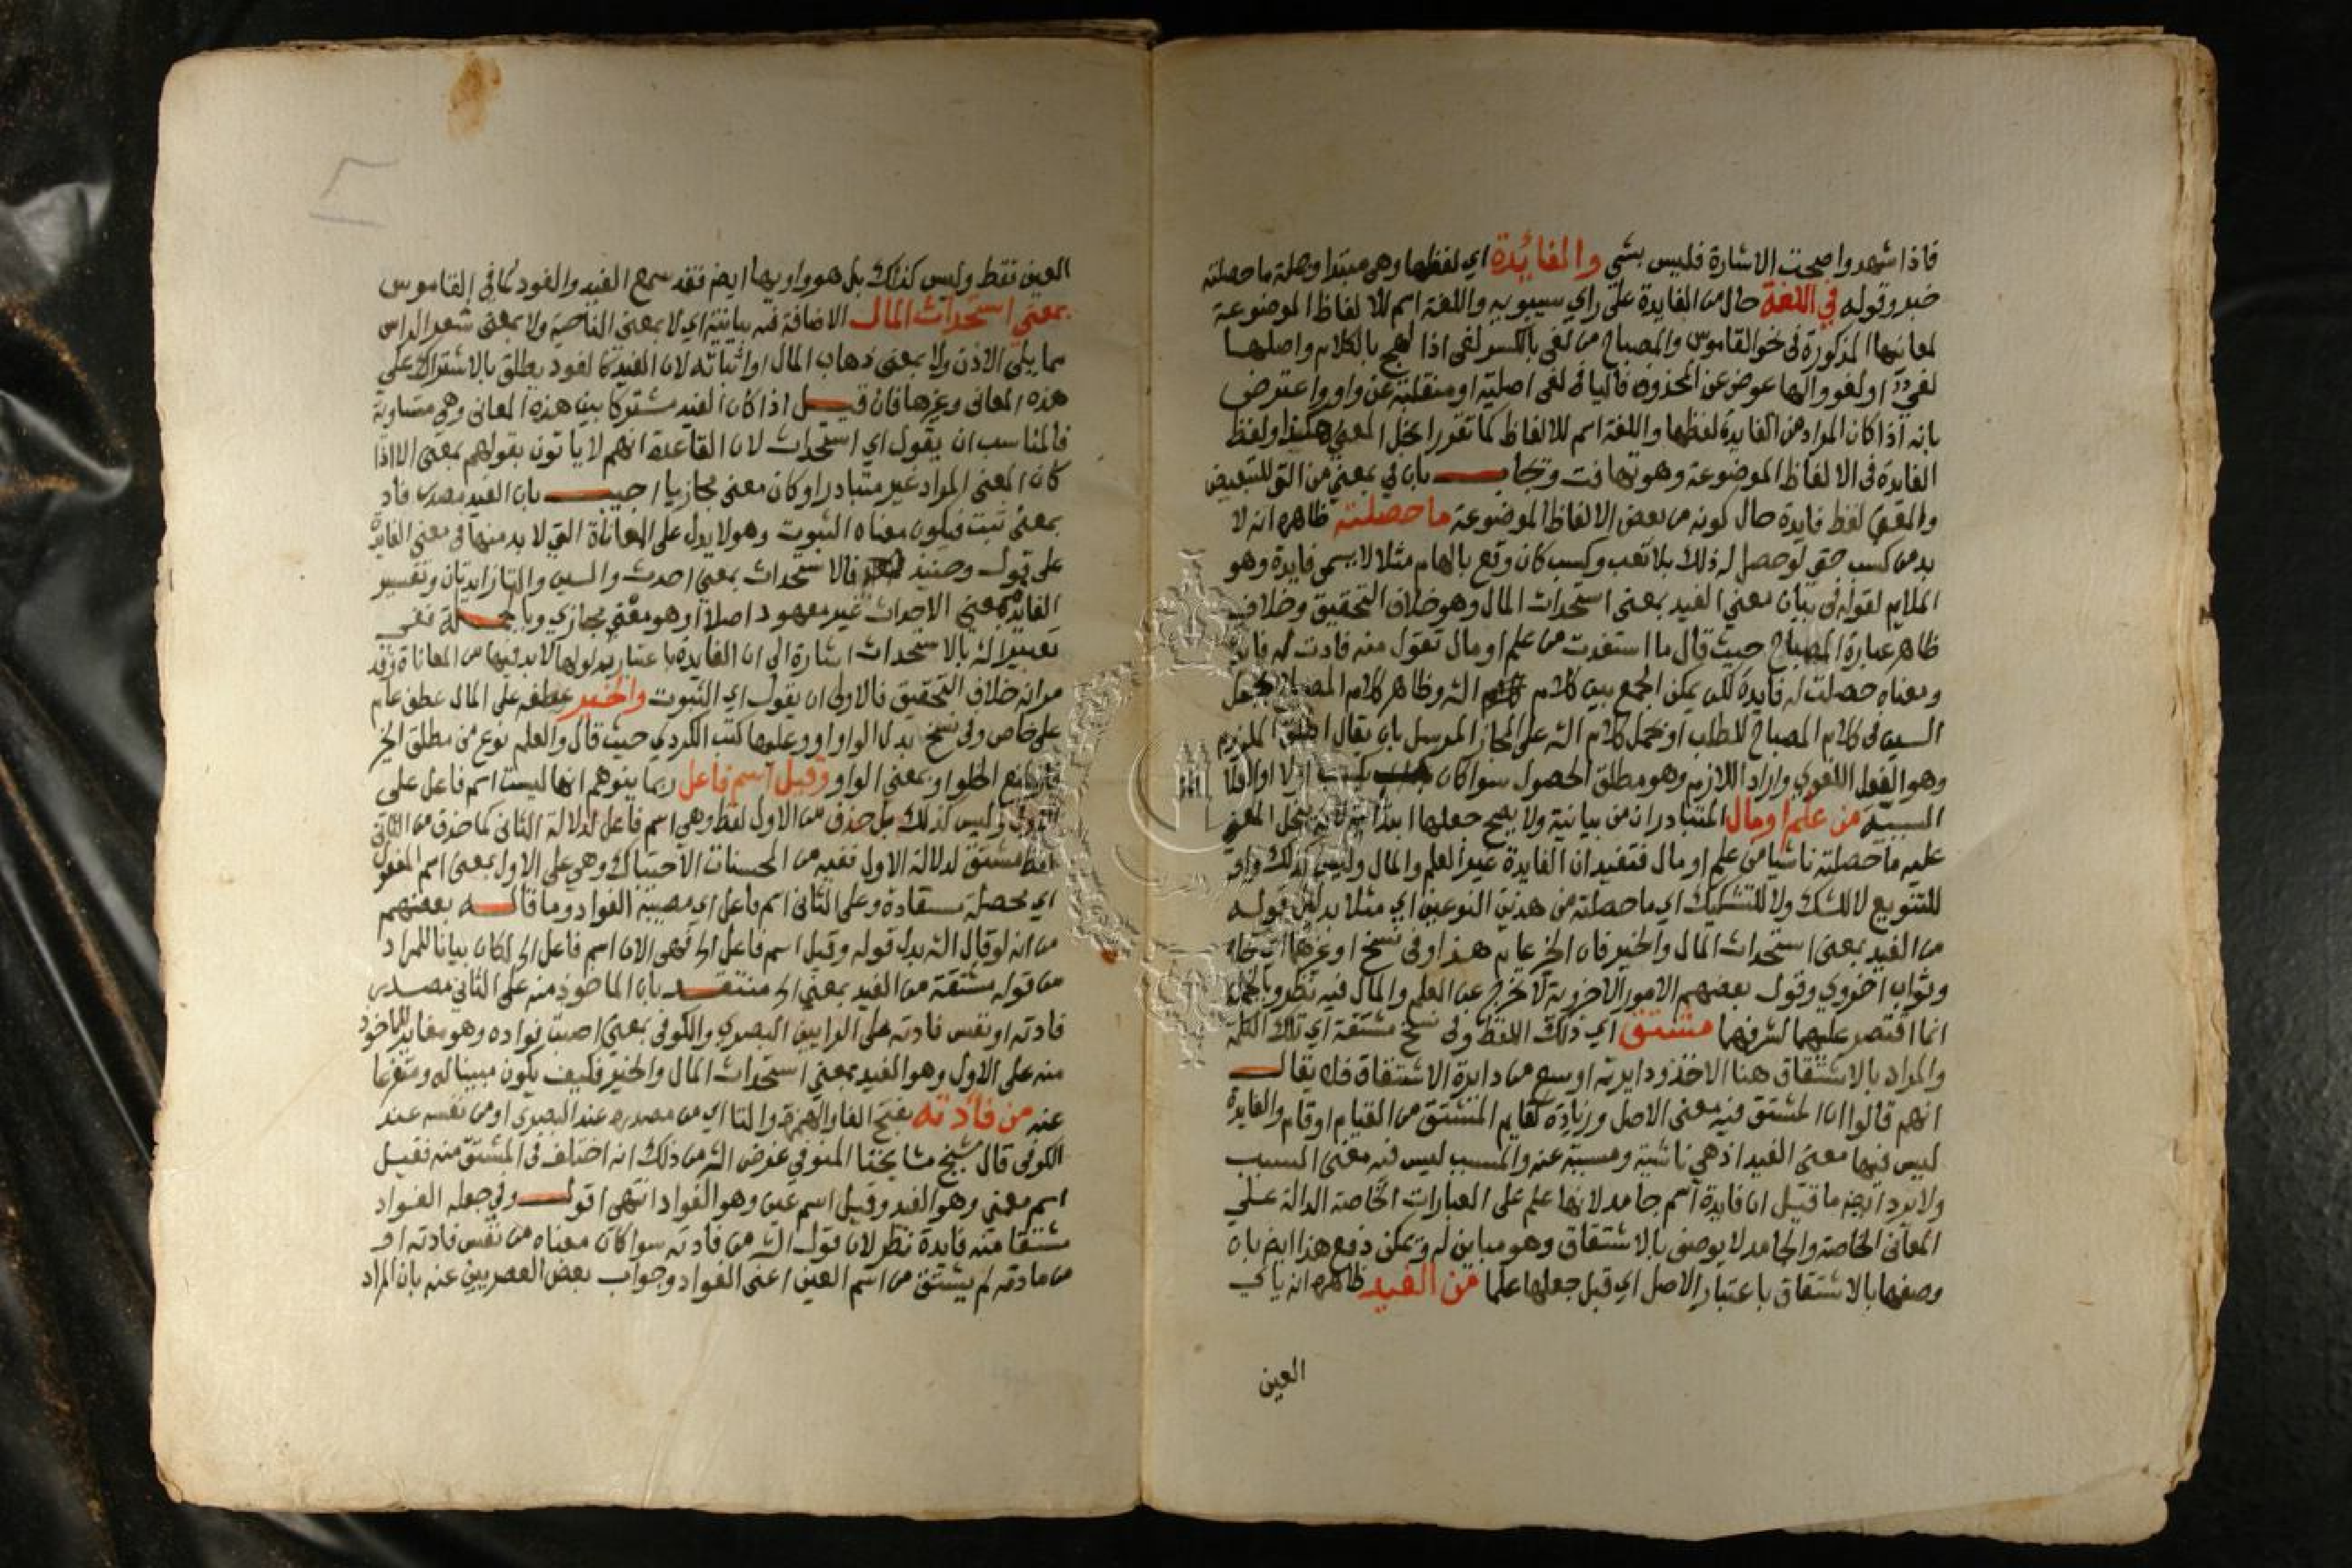 فاذا شهدوا صحت الاشارة فليس بشي والفائدة اي لفظها وهي مبتدا وصلة ما حصلته
خبر وقوله في اللغة حال من الفايدة على راي سيبويه واللغة اسم للالفاظ الموضوعة
لمعانيها المذكورة في نحو القاموس والمصباح من لغى بالكسر لغى اذا لهج بالكلام واصلها
لغي او لغو والها عوض عن المحذوف فاليا في لغى اصلية او منقلبة عن واو واعترض
بانه اذا كان المراد من الفايدة لفظها واللغة اسم للالفاظ كما تقرر انحل المعنى هكذا ولفظ
الفايدة في الالفاظ الموضوعة وهو تهافت ويجاب بان في بمعنى من التي للتبعيض
والمعنى لفظ فايدة حال كونه من بعض الالفاظ الموضوعة ما حصلته ظاهره انه لا
بد من كسب حتى لو حصل له ذلك بلا تعب وكسب كان وقع بالهام مثلا لا يسمى فايدة وهو
الملايم لقوله في بيان معنى الفيد بمعنى استحداث المال وهو خلاف التحقيق وخلاف
ظاهر عبارة المصباح حيث قال ما استفدت من علم او مال تقول منه فادت له فايدة
ومعناه حصلت له فايدة لكن يمكن الجمع بين كلام الش وظاهر كلام المصباح بجعل
السين في كلام المصباح للطلب او نحمل كلام الش على المجاز المرسل بان يقال اطلق الملزوم
وهو الفعل اللغوي واراد اللازم وهو مطلق الحصول سوا كان بكسب اولا
من علم او مال المتبادر ان من بيانية ولا يصح جعلها ابتدائية لانه ينحل المعنى
عليه ما حصلته ناشيا من علم او مال فتفيد ان الفايدة غير العلم والمال وليس كذلك واو
للتنويع لا للشك ولا للتشكيك اي ما حصلته من هذين النوعين اي مثلا بدليل قوله
من الفيد بمعنى استحداث المال والخير فان الخير عام هذا وفي نسخ او غيرهما
وثواب اخروي وقول بعضهم الامور الاخروية لا تخرج عن العلم والمال فيه نظر وبالجملة
انما اقتصر عليهما لشرفهما مشتق اي ذلك اللفظ وفي نسخ مشتقة اي تلك الكلمة
والمراد بالاشتقاق هنا الاخذ ودايرته اوسع من دايرة الاشتقاق فلا يقال
انهم قالوا ان المشتق فيه معنى الاصل وزيادة كقايم المشتق من القيام او قام والفايدة
ليس فيها معنى الفيد اذ هي ناشية ومسببة عنه والمسبب ليس فيه معنى السبب
ولا يرد ايضا ما قيل ان فايدة اسم جامد لانها علم على العبارات الخاصة الدالة على
المعاني الخاصة والجامد لا يوصف بالاشتقاق وهو مباين له ويمكن دفع هذا ايضا بان
وصفها بالاشتقاق باعتبار الاصل اي قبل جعلها علما من الفيد ظاهره انه يائي
العين
العين فقط وليس كذلك بل هو واويها ايضا فقد سمع الفيد والفود كما في القاموس
بمعنى استحداث المال الاضافة فيه بيانية اي لا بمعنى الناصية ولا بمعنى شعر الراس
مما يلي الاذن ولا بمعنى ذهاب المال او اثباته لان الفيد كالفود يطلق بالاشتراك على
هذه المعاني وغيرها فان قيل اذا كان الفيد مشتركا بين هذه المعاني وهي متساوية
فالمناسب ان يقول اي استحداث لان القاعدة انهم لا ياتون بقولهم بمعنى الا اذا
كان المعنى المراد غير متبادر او كان معنى مجازيا اجيب بان الفيد مصدر فاد
بمعنى ثبت فيكون معناه الثبوت وهو لا يدل على المعاناة التي لا بد منها في معنى الفايدة
على قول وحينئذ فالاستحداث بمعنى احدث والسين والتا زايدتان وتفسير
الفايدة بمعنى الاحداث غير معهود اصلا او هو معنى مجازي وبالجملة ففي
تعبير الش بالاستحداث اشارة الى ان الفايدة باعتبار مدلولها لا بد فيها من المعاناة وقد
مر انه خلاف التحقيق فالاولى ان يقول اي الثبوت والخير عطفه على المال عطف عام
على خاص وفي نسخ بدل الواو او وعليها كتب الكردي حيث قال والعلم نوع من مطلق الخير
الخلو او بمعنى الواو وقيل اسم فاعل ربما يتوهم انها ليست اسم فاعل على
وليس كذلك بل حذف من الاول لفظ وهي اسم فاعل لدلالة الثاني كما حذف من الثاني
لفظ مشتق لدلالة الاول ففيه من المحسنات الاحتباك وهي على الاول بمعنى اسم المفعول
اي محصلة مستفادة وعلى الثاني اسم فاعل اي مصيبة الفواد وما قاله بعضهم
من انه لو قال الش بدل قوله وقيل اسم فاعل الخ فهي الان اسم فاعل الخ لكان بيانا للمراد
من قوله مشتقة من الفيد بمعنى الخ منتقد بان الماخوذ منه على الثاني مصدر
فادته او نفس فادته على الرايين البصري والكوفي بمعنى اصبت فواده وهو مغاير للماخوذ
منه على الاول وهو الفيد بمعنى استحداث المال والخير فكيف يكون مبينا له ومتفرعا
عنه من فادته بفتح الفا والهمزة والتا اي من مصدره عند البصري او من نفسه عند
الكوفي قال شيخ مشايخنا المنوفي غرض الش من ذلك انه اختلف في المشتق منه فقيل
اسم معنى وهو الفيد وقيل اسم عين وهو الفواد انتهى اقول وفي جعله الفواد
مشتقا منه فايدة نظر لان قول الش من فادته سوا كان معناه من نفس فادته او
من مادته لم يشتق من اسم العين اعني الفواد وجواب بعض العصريين عنه بان المراد